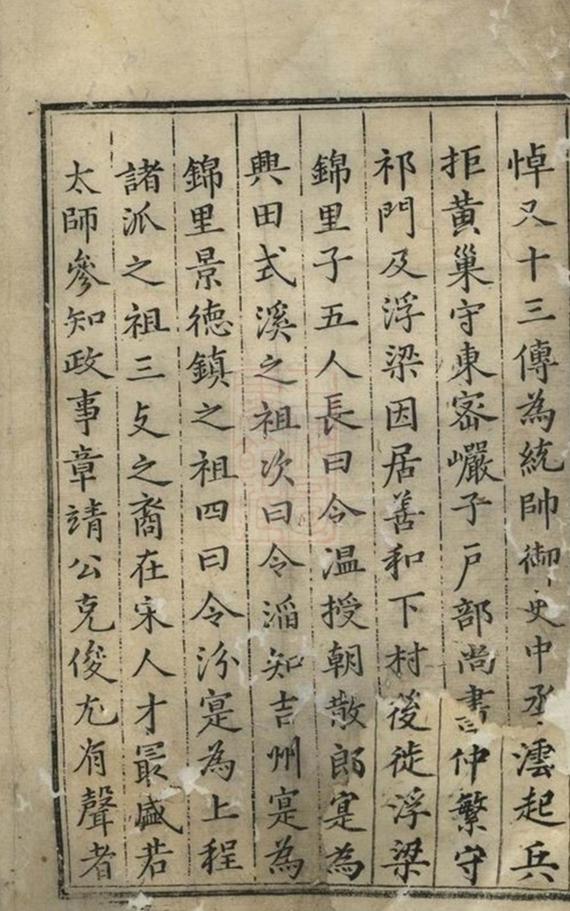 悼又十三傳為統帥御史中丞澐起兵
拒黃巢守東密巖子戶部尚書仲繁守
祁門及浮梁因居善和下村後徙浮梁
錦里子五人長曰令温授朝散郎寔為
興田式溪之祖次曰令滔知吉州寔為
錦里景德鎮之祖四曰令汾寔為上程
諸派之祖三攴之裔在宋人才最盛若
太師參知政事章靖公克俊尤有聲者